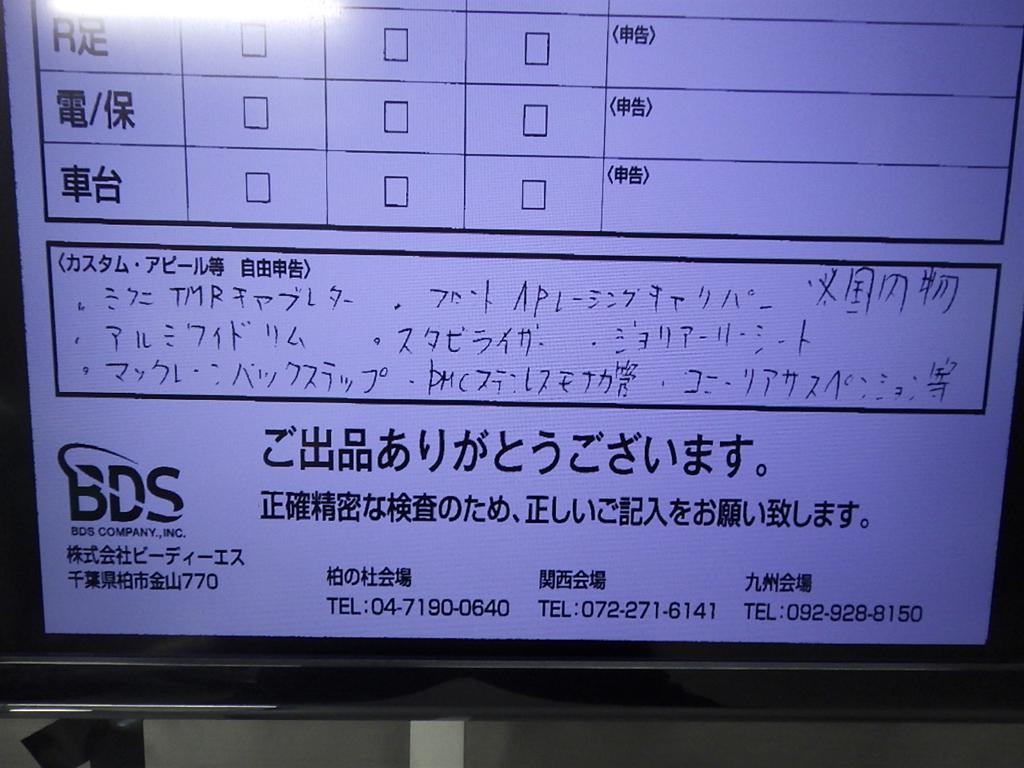 R足 □ □ □ 〈申告〉
電/保 □ □ □ 〈申告〉
車台 □ □ □ 〈申告〉
〈カスタム・アピール等 自由申告〉
・ミクニTMRキャブレター ・フロントAPレーシングキャリパー ※国内物
・アルミワイドリム ・スタビライザー ・ジョリアーリーシート
・マックレーンバックステップ ・PMCステンレスモナカ管 ・コニーリアサスペンション等
ご出品ありがとうございます。
正確精密な検査のため、正しいご記入をお願い致します。
BDS
BDS COMPANY.,INC.
株式会社ビーディーエス
千葉県柏市金山770
柏の杜会場
TEL:04-7190-0640
関西会場
TEL:072-271-6141
九州会場
TEL:092-928-8150